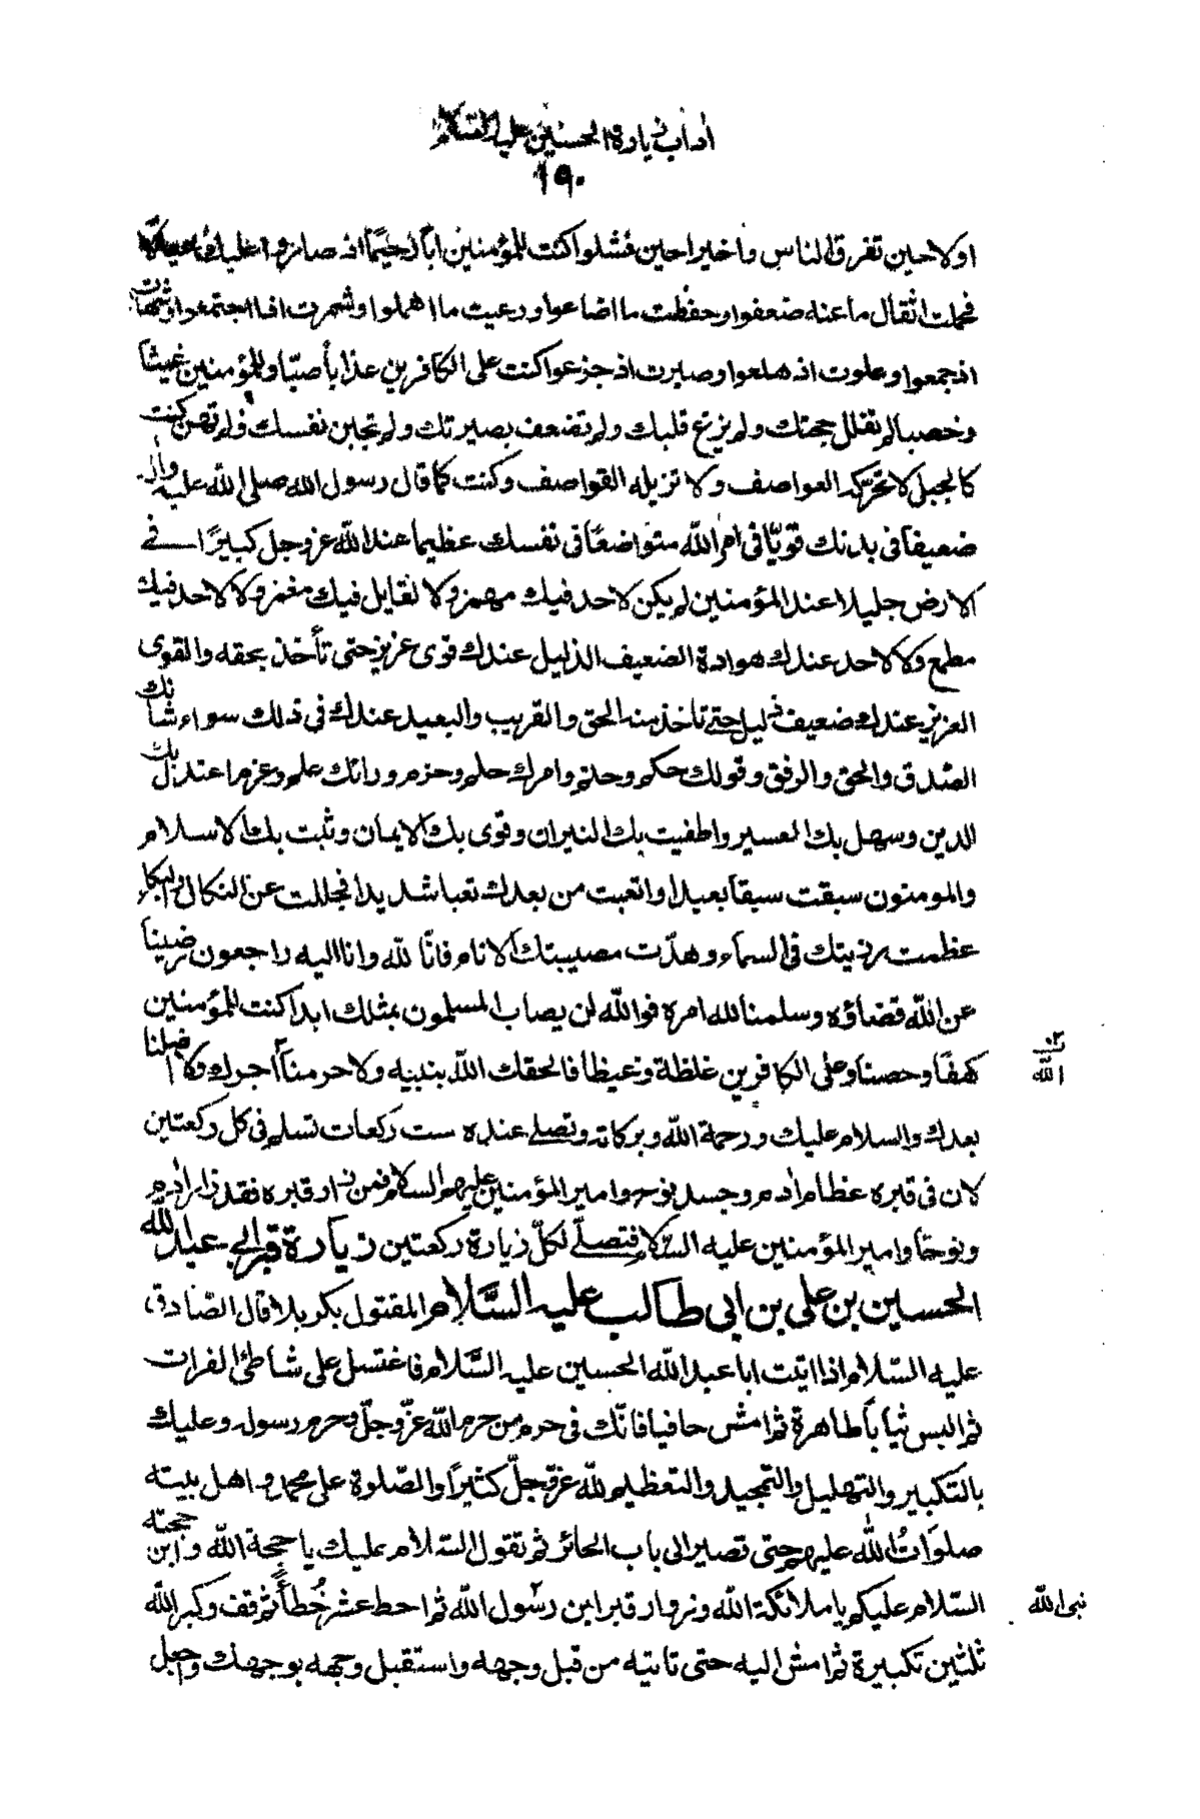 اداب زيارة الحسين عليه السلام
١٩٠
اولا حين تفرق الناس واخيرا حين فشلوا كنت للمؤمنين اباً رحيماً اذ صاروا عليك عيالا
فحملت اثقال ما عنه ضعفوا وحفظت ما اضاعوا ورعيت ما اهملوا وشمرت اذا اجتمعوا وشهدت
اذ جمعوا وعلوت اذ هلعوا وصبرت اذ جزعوا كنت على الكافرين عذاباً صبّا وللمؤمنين غيثاً
وخصبا لم تفلل حجتك ولم يزغ قلبك ولم تضعف بصيرتك ولم تجبن نفسك ولم تهن كنت
كالجبل لا تحرّكه العواصف ولا تزيله القواصف وكنت كما قال رسول الله صلى الله عليه وآله
ضعيفاً في بدنك قويّا في امر الله متواضعاً في نفسك عظيما عند الله عز وجل كبيرًا في
الارض جليلا عند المؤمنين لم يكن لاحد فيك مهمز ولا لقايل فيك مغمز ولا لاحد فيك
مطمع ولا لاحد عندك هوادة الضعيف الذليل عندك قوى عزيز حتى تأخذ بحقه والقوى
العزيز عندك ضعيف ذليل حتى تاخذ منه الحق والقريب والبعيد عندك في ذلك سواء شأنك
الصّدق والحق والرفق وقولك حكم وحتم وامرك حلم وحزم ورايك علم وعزم اعتدل بك
الدين وسهل بك العسير واطفيت بك النيران وقوى بك الايمان وثبت بك الاسلام
والمومنون سبقت سبقاً بعيدا واتعبت من بعدك تعبا شديدا فجللت عن النكال والبكاء
عظمت رزيتك في السماء وهدّت مصيبتك الانام فانّا لله وانا اليه راجعون رضينا
عن الله قضاؤه وسلمنا لله امره فوالله لن يصاب المسلمون بمثلك ابدا كنت للمؤمنين
كهفًا وحصنا وعلى الكافرين غلظة وغيظا فالحقك الله بنبيه ولا حرمنا اجرك ولا اضلنا
الله
بعدك والسلام عليك ورحمة الله وبركاته وتصلى عنده ست ركعات تسلم في كل ركعتين
لان في قبره عظام ادم وجسد نوح وامير المؤمنين عليهم السلام فمن زار قبره فقد زار ادم
ونوحا وامير المؤمنين عليه السلام فتصلّى لكلّ زيارة ركعتين زيارة قبر ابي عبد الله
الحسين بن على بن ابى طالب عليه السَّلام المقتول بكربلا قال الصّادق
عليه السّلام اذا اتيت ابا عبد الله الحسين عليه السَّلام فاغتسل على شاطئ الفرات
ثم البس ثياباً طاهرة ثم امش حافيا فانّك في حرم من حرم الله عزّ وجلّ وحرم رسوله وعليك
بالتكبير والتهليل والتمجيد والتعظيم لله عز وجلّ كثيرًا والصّلوة على محمد واهل بيته
صلوَاتُ الله عليهم حتى تصير الى باب الحائر ثم تقول السّلام عليك يا حجة الله وابن حجته
السّلام عليكم يا ملائكة الله وزوار قبر ابن رسول الله ثم احط عشر خُطاً ثم قف وكبر الله
نبى الله
ثلثين تكبيرة ثم امش اليه حتى تاتيه من قبل وجهه واستقبل وجهه بوجهك واجعل